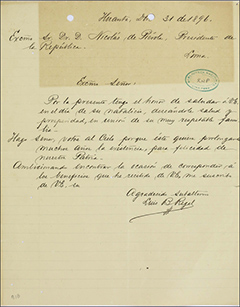 Huanta, Dbre 31 de 1896.
Excmo Sr. Dr. D. Nicolás de Piérola, Presidente de
la República.
Lima.
Excmo Señor:
Por la presente tengo el honor de saludar á VE.
en el día de su natalicio, deseándole salud y
prosperidad, en unión de su muy respetable fami
lia.
Hago Señor, votos al Cielo porque éste quiera prolongar
mucho tiempo su existencia, para felicidad de
nuestra Patria.
Ambicionando encontrar la ocasión de corresponder á
los beneficios que he recibido de VE, me suscribo
de VE, su
Agradecido subalterno
Luis B.